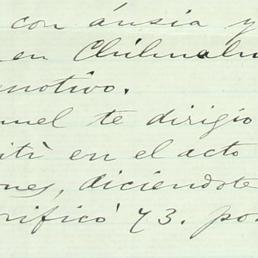 con ánsia y
en Chihuahu
motivo.
muel te dirigio
ití en el acto
ones, diciéndote
rificó y 3. por